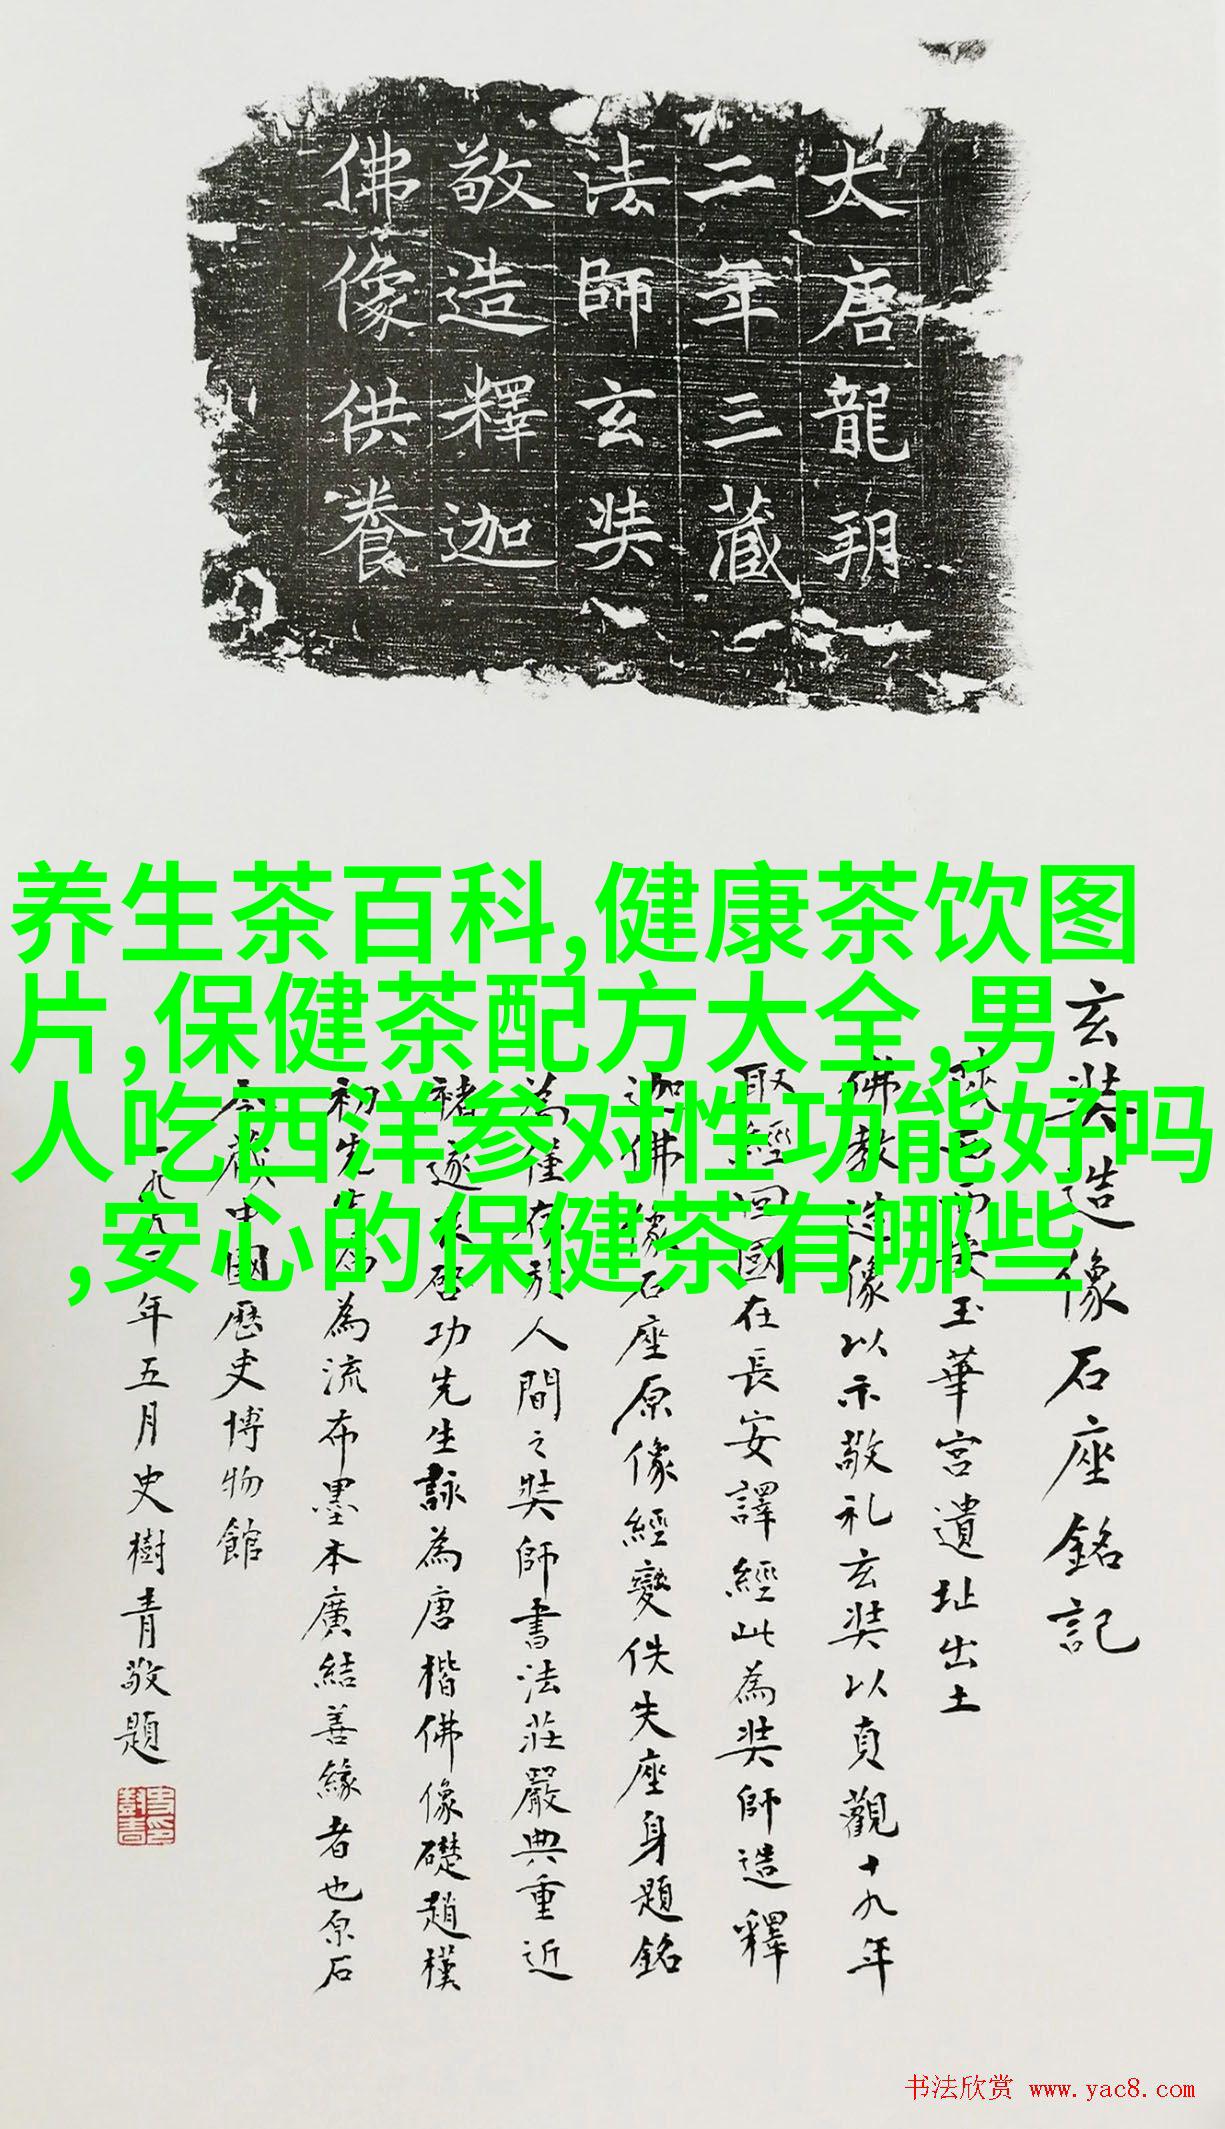 大唐龍朔
二年三藏
法師玄奘
敬造釋迦
佛像供養
养生茶百科,健康茶饮图
片,保健茶配方大全,男
人吃西洋参对性功能好吗
,安心的保健茶有哪些
玄奘造像石座銘記
陝西西安玉華宮遺址出土
佛教造像以示敬礼玄奘以貞觀十九年
取經迴國在長安譯經此為奘師造釋
迦佛像石座原像經變佚失座身題銘
為僅存於人間之奘師書法莊嚴典重近
褚遂良啓功先生詠為唐楷佛像礎趙樸
初先生為流布墨本廣結善緣者也原石
今藏中國歷史博物館
一九九年五月史樹青敬題
书法欣赏 www.yac8.com